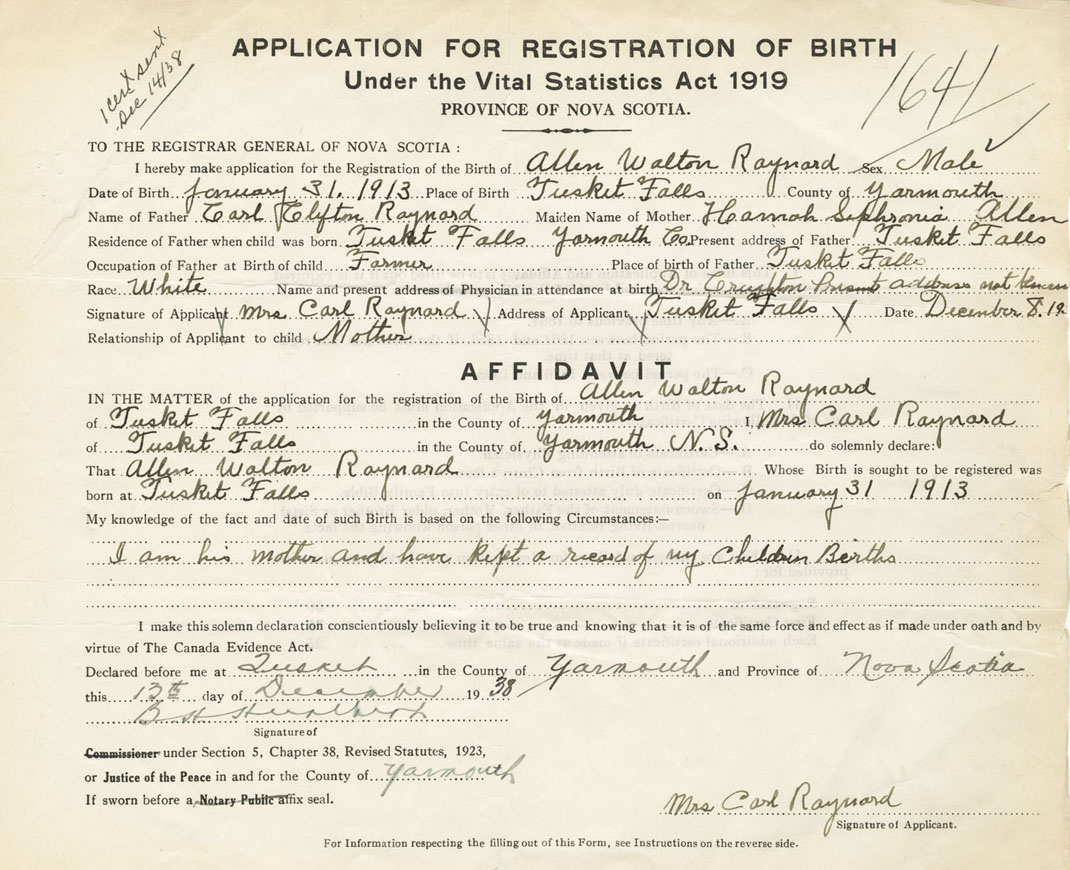 1 cert sent
Dec 14/38
APPLICATION FOR REGISTRATION OF BIRTH
Under the Vital Statistics Act 1919
PROVINCE OF NOVA SCOTIA.
1641
TO THE REGISTRAR GENERAL OF NOVA SCOTIA :
I hereby make application for the Registration of the Birth of Allen Walton Raynard Sex Male
Date of Birth January 31. 1913 Place of Birth Tusket Falls County of Yarmouth
Name of Father Carl Clifton Raynard Maiden Name of Mother Hannah Sophronia Allen
Residence of Father when child was born Tusket Falls Yarmouth Co Present address of Father Tusket Falls
Occupation of Father at Birth of child Farmer Place of birth of Father Tusket Falls
Race White Name and present address of Physician in attendance at birth Dr Creighton Present address not known
Signature of Applicant Mrs Carl Raynard Address of Applicant Tusket Falls Date December 8. 19
Relationship of Applicant to child Mother
AFFIDAVIT
IN THE MATTER of the application for the registration of the Birth of Allen Walton Raynard
of Tusket Falls in the County of Yarmouth I, Mrs Carl Raynard
of Tusket Falls in the County of Yarmouth N.S. do solemnly declare:
That Allen Walton Raynard Whose Birth is sought to be registered was
born at Tusket Falls on January 31 1913
My knowledge of the fact and date of such Birth is based on the following Circumstances:—
I am his mother and have kept a record of my Children Births
I make this solemn declaration conscientiously believing it to be true and knowing that it is of the same force and effect as if made under oath and by
virtue of The Canada Evidence Act.
Declared before me at Tusket in the County of Yarmouth and Province of Nova Scotia
this 13th day of December 19 38
Signature of
Commissioner under Section 5, Chapter 38, Revised Statutes, 1923,
or Justice of the Peace in and for the County of Yarmouth
If sworn before a Notary Public affix seal.
Mrs Carl Raynard
Signature of Applicant.
For Information respecting the filling out of this Form, see Instructions on the reverse side.